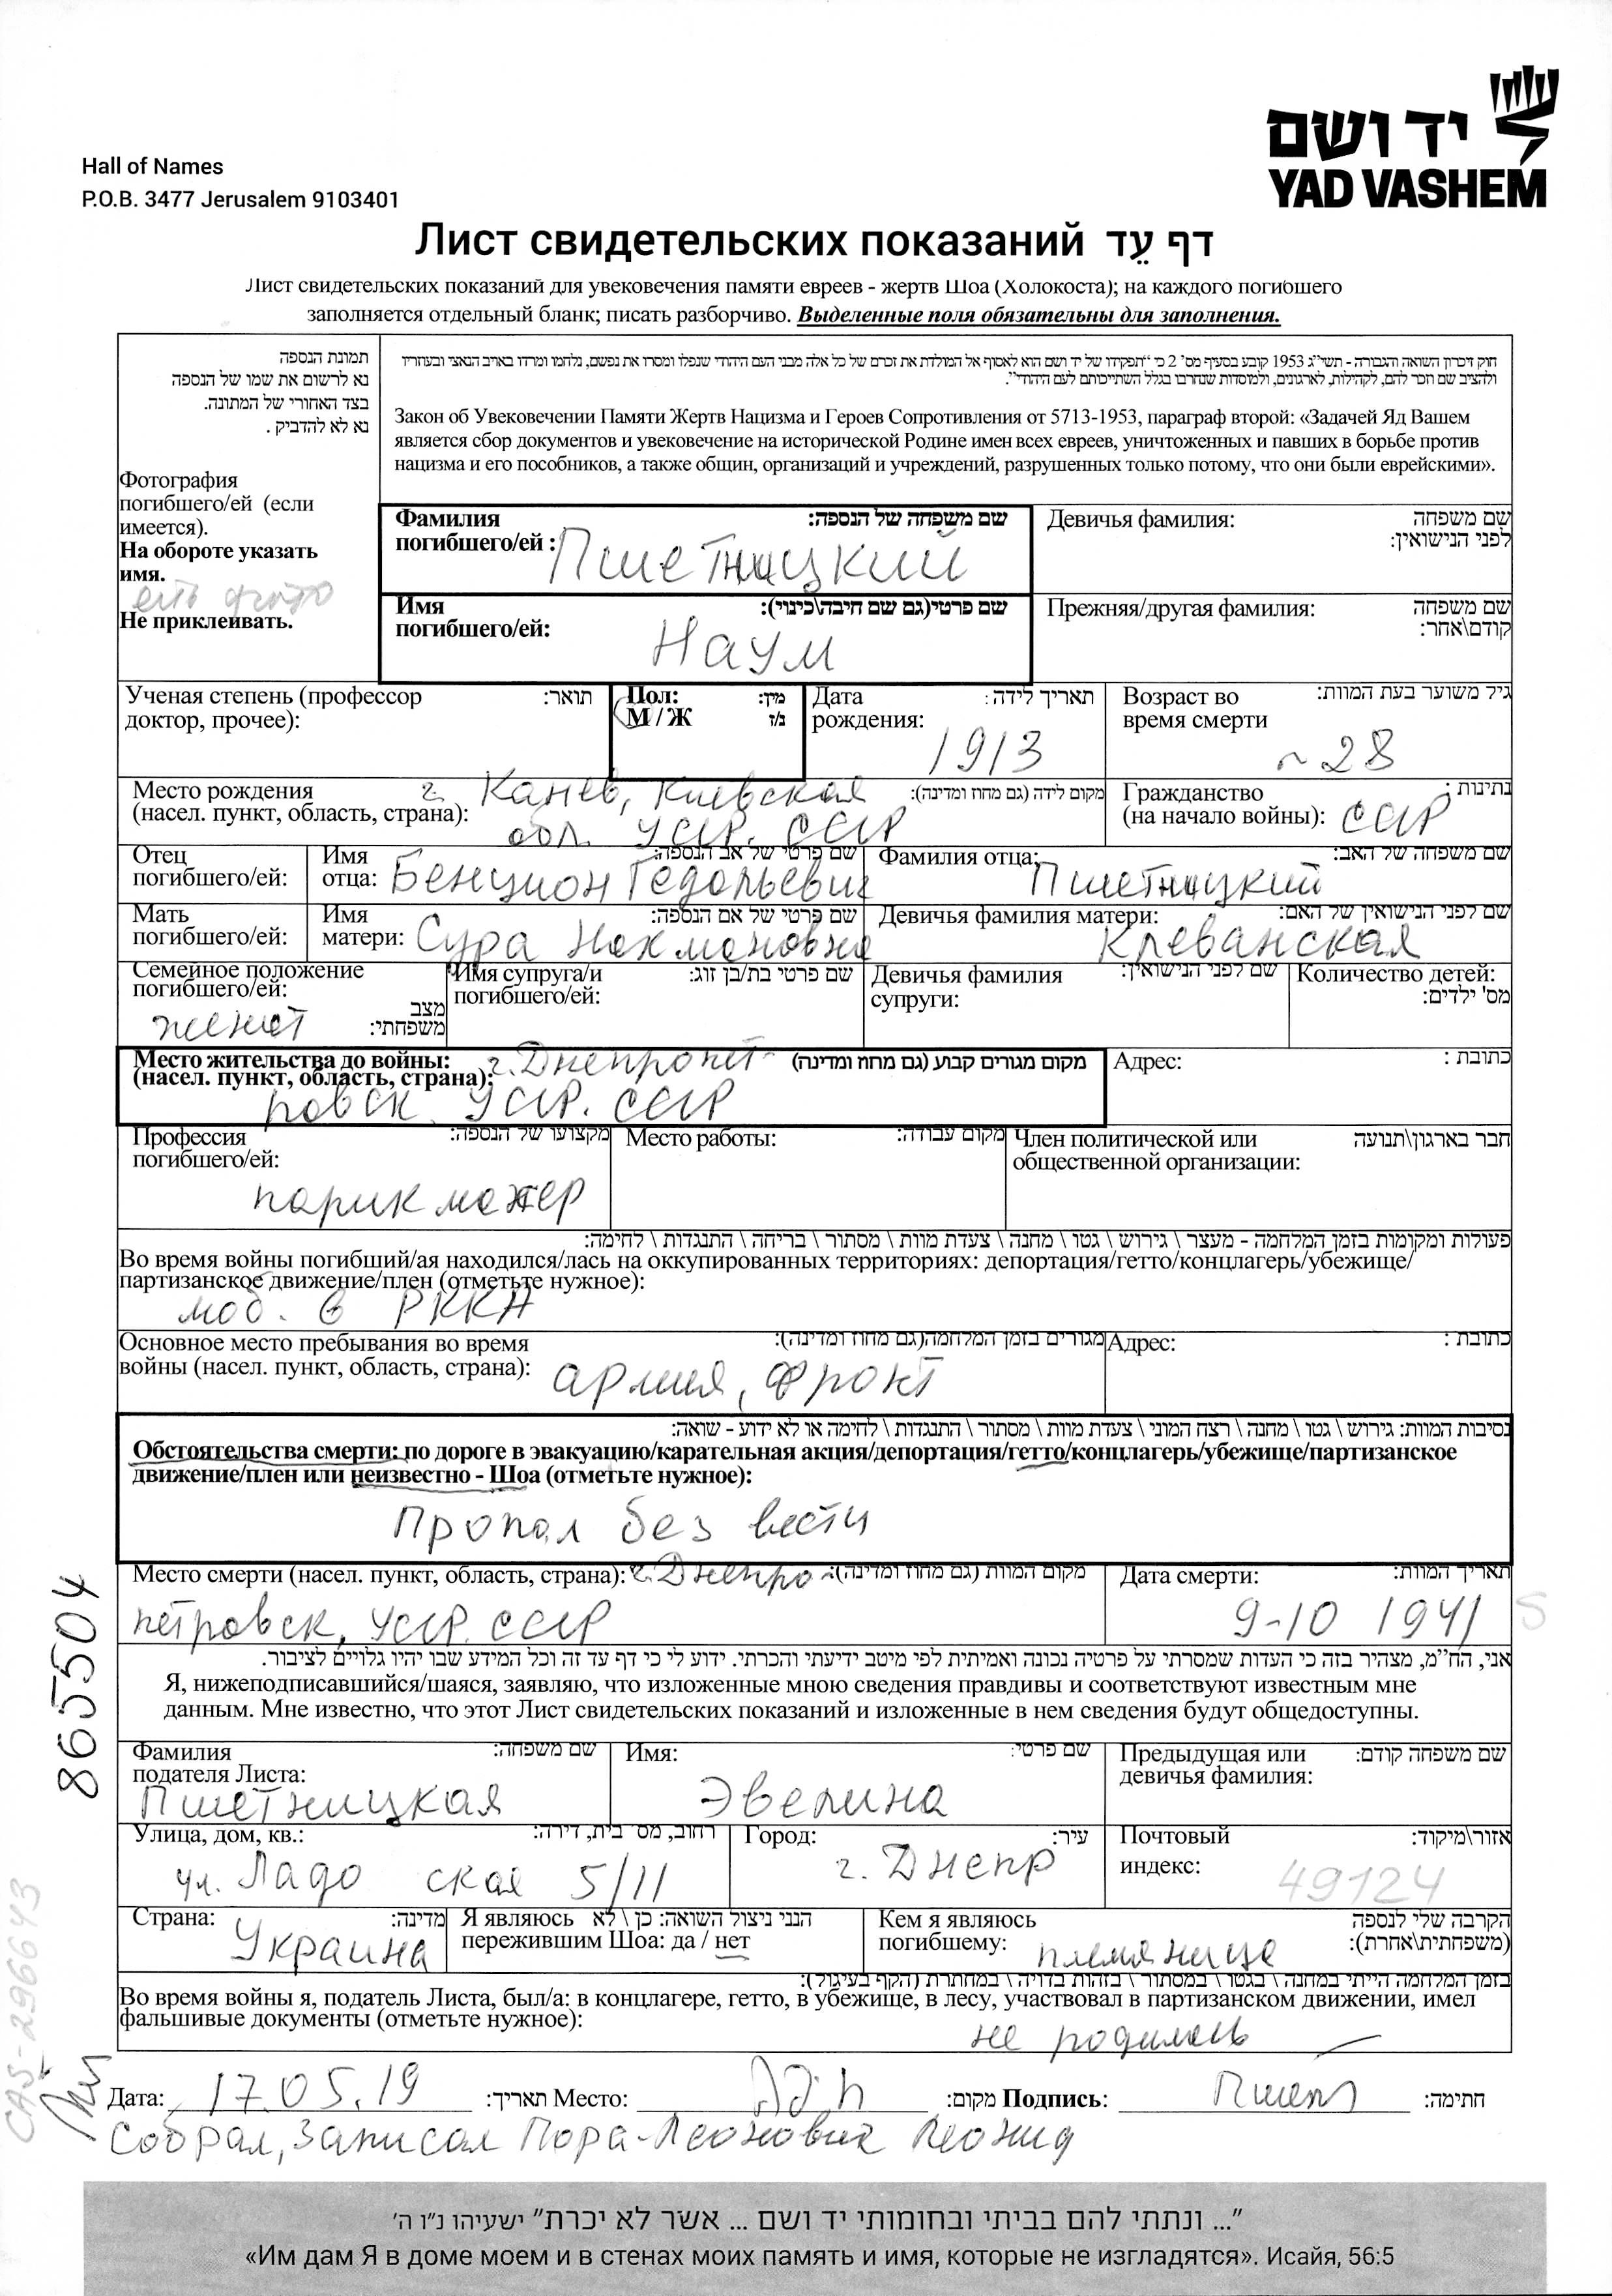 יד ושם
YAD VASHEM
Hall of Names
P.O.B. 3477 Jerusalem 9103401
Лист свидетельских показаний דף עֵד
Лист свидетельских показаний для увековечения памяти евреев - жертв Шоа (Холокоста); на каждого погибшего
заполняется отдельный бланк; писать разборчиво. Выделенные поля обязательны для заполнения.
תמונת הנספה
נא לרשום את שמו של הנספה
בצד האחורי של התמונה.
נא לא להדביק .
Фотография
погибшего/ей (если
имеется).
На обороте указать
имя.
есть фото
Не приклеивать.
חוק זיכרון השואה והגבורה - תשי״ג 1953 קובע בסעיף מס׳ 2 כי ״תפקידו של יד ושם הוא לאסוף אל המולדת את זכרם של כל אלה מבני העם היהודי שנפלו ומסרו את נפשם, נלחמו ומרדו באויב הנאצי ובעוזריו
ולהציב שם וזכר להם, לקהילות, לארגונים, ולמוסדות שנחרבו בגלל השתייכותם לעם היהודי״.
Закон об Увековечении Памяти Жертв Нацизма и Героев Сопротивления от 5713-1953, параграф второй: «Задачей Яд Вашем
является сбор документов и увековечение на исторической Родине имен всех евреев, уничтоженных и павших в борьбе против
нацизма и его пособников, а также общин, организаций и учреждений, разрушенных только потому, что они были еврейскими».
Фамилия שם משפחה של הנספה:
погибшего/ей : Пшетницкий
Девичья фамилия: שם משפחה
לפני הנישואין:
Имя שם פרטי(גם שם חיבה\כינוי):
погибшего/ей: Наум
Прежняя/другая фамилия: שם משפחה
קודם\אחר:
Ученая степень (профессор תואר:
доктор, прочее):
Пол: מין:
М / Ж ז/נ
Дата תאריך לידה:
рождения: 1913
Возраст во גיל משוער בעת המוות:
время смерти ~ 28
Место рождения г. Канев, Киевская מקום לידה (גם מחוז ומדינה):
(насел. пункт, область, страна): обл. УССР. СССР
Гражданство נתינות:
(на начало войны): СССР
Отец
погибшего/ей:
Имя שם פרטי של אב הנספה:
отца: Бенцион Гедальевич
Фамилия отца: שם משפחה של האב:
Пшетницкий
Мать
погибшего/ей:
Имя שם פרטי של אם הנספה:
матери: Сура Нахмановна
Девичья фамилия матери: שם לפני הנישואין של האם:
Клеванская
Семейное положение
погибшего/ей: מצב
женат משפחתי:
Имя супруга/и שם פרטי בת/בן זוג:
погибшего/ей:
Девичья фамилия שם לפני הנישואין:
супруги:
Количество детей:
מס' ילדים:
Место жительства до войны: г. Днепропет- מקום מגורים קבוע (גם מחוז ומדינה)
(насел. пункт, область, страна):
ровск, УССР. СССР
Адрес: כתובת :
Профессия מקצועו של הנספה:
погибшего/ей:
парикмахер
Место работы: מקום עבודה:
Член политической или חבר בארגון\תנועה
общественной организации:
פעולות ומקומות בזמן המלחמה - מעצר \ גירוש \ גטו \ מחנה \ צעדת מוות \ מסתור \ בריחה \ התנגדות \ לחימה:
Во время войны погибший/ая находился/лась на оккупированных территориях: депортация/гетто/концлагерь/убежище/
партизанское движение/плен (отметьте нужное):
моб. в РККА
Основное место пребывания во время מגורים בזמן המלחמה(גם מחוז ומדינה):
войны (насел. пункт, область, страна): армия, фронт
Адрес: כתובת :
נסיבות המוות: גירוש \ גטו \ מחנה \ רצח המוני \ צעדת מוות \ מסתור \ התנגדות \ לחימה או לא ידוע - שואה:
Обстоятельства смерти: по дороге в эвакуацию/карательная акция/депортация/гетто/концлагерь/убежище/партизанское
движение/плен или неизвестно - Шоа (отметьте нужное):
Пропал без вести
Место смерти (насел. пункт, область, страна): г. Днепро- מקום המוות (גם מחוז ומדינה):
петровск, УССР. СССР
Дата смерти: תאריך המוות:
9-10 1941 S
אני, הח״מ, מצהיר בזה כי העדות שמסרתי על פרטיה נכונה ואמיתית לפי מיטב ידיעתי והכרתי. ידוע לי כי דף עד זה וכל המידע שבו יהיו גלויים לציבור.
Я, нижеподписавшийся/шаяся, заявляю, что изложенные мною сведения правдивы и соответствуют известным мне
данным. Мне известно, что этот Лист свидетельских показаний и изложенные в нем сведения будут общедоступны.
Фамилия שם משפחה:
подателя Листа:
Пшетницкая
Имя: שם פרטי:
Эвелина
Предыдущая или שם משפחה קודם:
девичья фамилия:
Улица, дом, кв.: רחוב, מס' בית, דירה:
ул. Ладо ская 5/11
Город: עיר:
г. Днепр
Почтовый אזור\מיקוד:
индекс: 49124
Страна: מדינה:
Украина
Я являюсь הנני ניצול השואה: כן \ לא
пережившим Шоа: да / нет
Кем я являюсь הקרבה שלי לנספה
погибшему: племяница (משפחתית\אחרת):
בזמן המלחמה הייתי במחנה \ בגטו \ במסתור \ בזהות בדויה \ במחתרת (הקף בעיגול):
Во время войны я, податель Листа, был/а: в концлагере, гетто, в убежище, в лесу, участвовал в партизанском движении, имел
фальшивые документы (отметьте нужное):
не родилась
Дата: 17.05.19 תאריך: Место: מקום: Подпись: Пшет חתימה:
Собрал, Записал Пора-Леонович Леонид
865504
CAS-296643
״... ונתתי להם בביתי ובחומותי יד ושם ... אשר לא יכרת״ ישעיהו נ״ו ה׳
«Им дам Я в доме моем и в стенах моих память и имя, которые не изгладятся». Исайя, 56:5